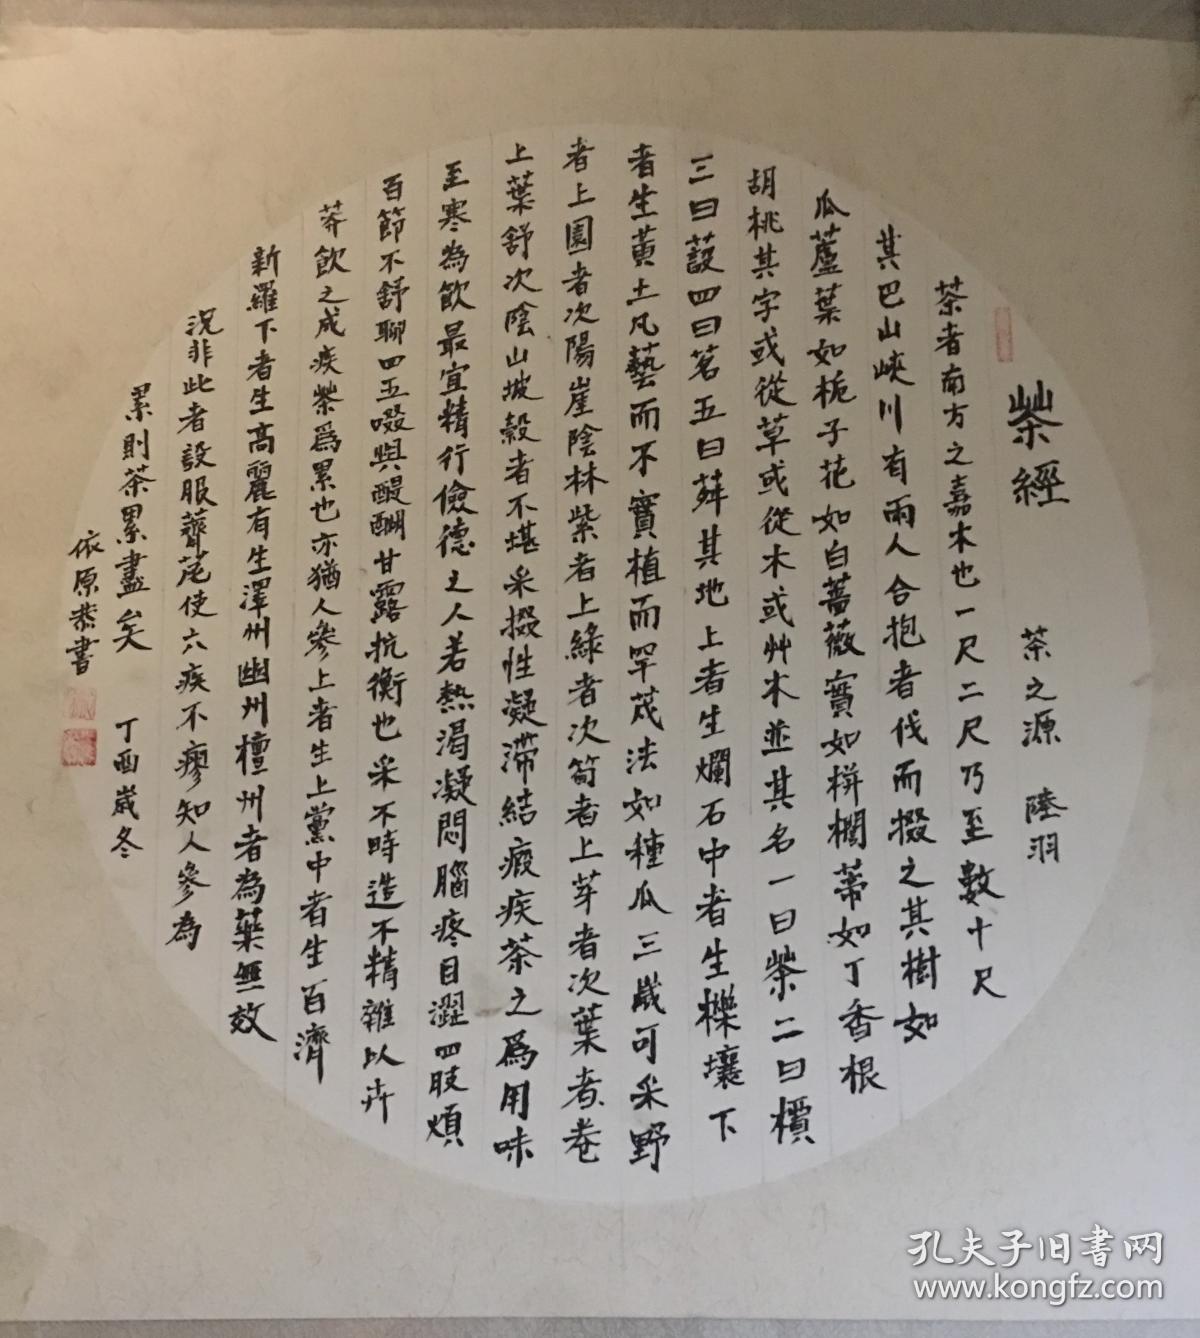 茶經 茶之源 陸羽
茶者南方之嘉木也一尺二尺乃至數十尺
其巴山峽川有兩人合抱者伐而掇之其樹如
瓜蘆葉如梔子花如白薔薇實如栟櫚蒂如丁香根
胡桃其字或從草或從木或艸木並其名一曰茶二曰檟
三曰蔎四曰茗五曰荈其地上者生爛石中者生櫟壤下
者生黃土凡藝而不實植而罕茂法如種瓜三歲可采野
者上園者次陽崖陰林紫者上綠者次筍者上芽者次葉者卷
上葉舒次陰山坡穀者不堪采掇性凝滯結瘕疾茶之為用味
至寒為飲最宜精行儉德之人若熱渴凝悶腦疼目澀四肢煩
百節不舒聊四五啜與醍醐甘露抗衡也采不時造不精雜以卉
莽飲之成疾茶爲累也亦猶人參上者生上黨中者生百濟
新羅下者生高麗有生澤州幽州檀州者為藥無效
況非此者設服薺苨使六疾不瘳知人參為
累則茶累盡矣 丁酉歲冬
依原恭書
孔夫子旧书网
www.kongfz.com